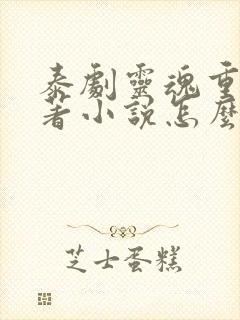 泰劇靈魂重
著小説怎麼
芝士蛋糕